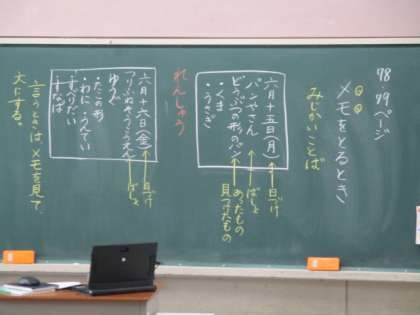 98・99ページ
メモをとるとき
みじかいことば
六月十五日(月)
パンやさん
どうぶつの形のパン
・くま
・うさぎ
日づけ
ばしょ
あったもの
見つけたもの
れんしゅう
六月十六日(金)
こうえん
ゆうぐ
・たこの形
・わに・うんてい
・すべりだい
・すなば
日づけ
ばしょ
言うときは、メモを見て
大にする。